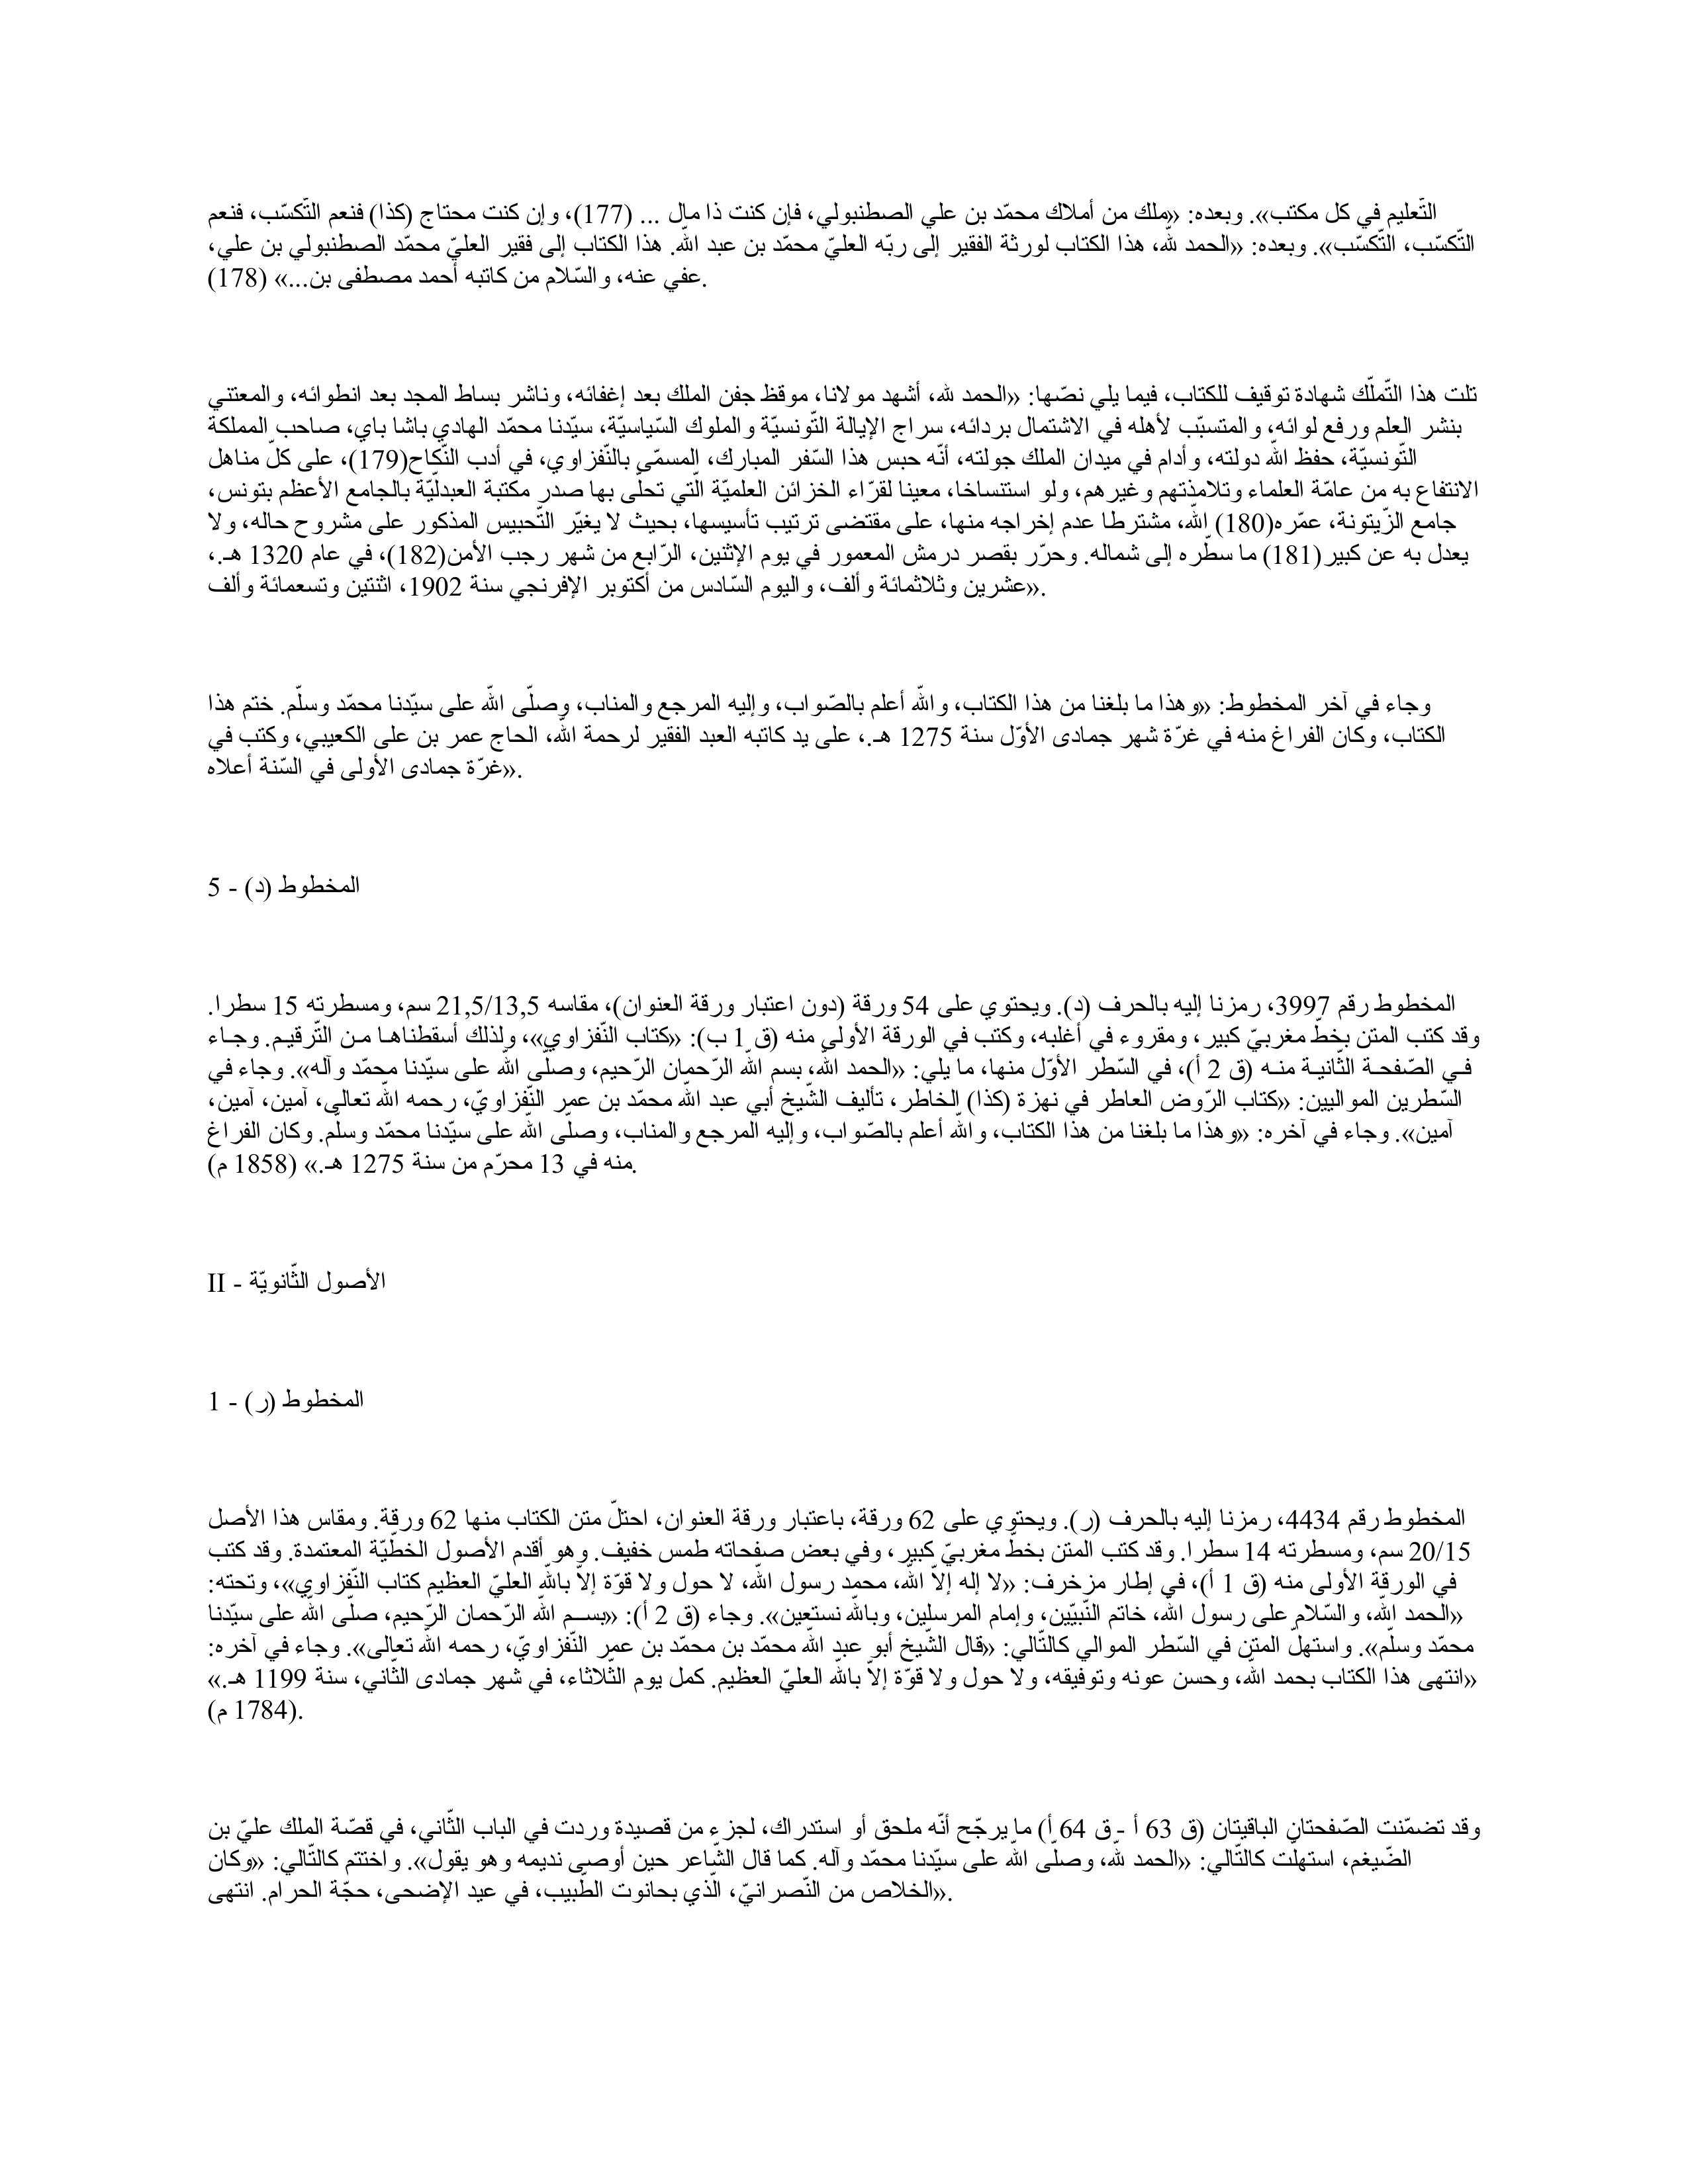 التّعليم في كل مكتب». وبعده: «ملك من أملاك محمّد بن علي الصطنبولي، فإن كنت ذا مال ... (177)، وإن كنت محتاج (كذا) فنعم التّكسّب، فنعم
التّكسّب، التّكسّب». وبعده: «الحمد للّه، هذا الكتاب لورثة الفقير إلى ربّه العليّ محمّد بن عبد اللّه. هذا الكتاب إلى فقير العليّ محمّد الصطنبولي بن علي،
عفي عنه، والسّلام من كاتبه أحمد مصطفى بن...» (178).
تلت هذا التّملّك شهادة توقيف للكتاب، فيما يلي نصّها: «الحمد لله، أشهد مولانا، موقظ جفن الملك بعد إغفائه، وناشر بساط المجد بعد انطوائه، والمعتني
بنشر العلم ورفع لوائه، والمتسبّب لأهله في الاشتمال بردائه، سراج الإيالة التّونسيّة والملوك السّياسيّة، سيّدنا محمّد الهادي باشا باي، صاحب المملكة
التّونسيّة، حفظ اللّه دولته، وأدام في ميدان الملك جولته، أنّه حبس هذا السّفر المبارك، المسمّى بالنّفزاوي، في أدب النّكاح(179)، على كلّ مناهل
الانتفاع به من عامّة العلماء وتلامذتهم وغيرهم، ولو استنساخا، معينا لقرّاء الخزائن العلميّة الّتي تحلّى بها صدر مكتبة العبدلّيّة بالجامع الأعظم بتونس،
جامع الزّيتونة، عمّره(180) اللّه، مشترطا عدم إخراجه منها، على مقتضى ترتيب تأسيسها، بحيث لا يغيّر التّحبيس المذكور على مشروح حاله، ولا
يعدل به عن كبير(181) ما سطّره إلى شماله. وحرّر بقصر درمش المعمور في يوم الإثنين، الرّابع من شهر رجب الأمن(182)، في عام 1320 هـ.،
عشرين وثلاثمائة وألف، واليوم السّادس من أكتوبر الإفرنجي سنة 1902، اثنتين وتسعمائة وألف».
وجاء في آخر المخطوط: «وهذا ما بلغنا من هذا الكتاب، واللّه أعلم بالصّواب، وإليه المرجع والمناب، وصلّى اللّه على سيّدنا محمّد وسلّم. ختم هذا
الكتاب، وكان الفراغ منه في غرّة شهر جمادى الأوّل سنة 1275 هـ.، على يد كاتبه العبد الفقير لرحمة اللّه، الحاج عمر بن على الكعيبي، وكتب في
غرّة جمادى الأولى في السّنة أعلاه».
5 - المخطوط (د)
المخطوط رقم 3997، رمزنا إليه بالحرف (د). ويحتوي على 54 ورقة (دون اعتبار ورقة العنوان)، مقاسه 21,5/13,5 سم، ومسطرته 15 سطرا.
وقد كتب المتن بخطّ مغربيّ كبير، ومقروء في أغلبه، وكتب في الورقة الأولى منه (ق 1 ب): «كتاب النّفزاوي»، ولذلك أسقطناهـا مـن التّرقيـم. وجـاء
فـي الصّفحـة الثّانيـة منـه (ق 2 أ)، في السّطر الأوّل منها، ما يلي: «الحمد اللّه، بسم اللّه الرّحمان الرّحيم، وصلّى اللّه على سيّدنا محمّد وآله». وجاء في
السّطرين المواليين: «كتاب الرّوض العاطر في نهزة (كذا) الخاطر، تأليف الشّيخ أبي عبد اللّه محمّد بن عمر النّفزاويّ، رحمه اللّه تعالى، آمين، آمين،
آمين». وجاء في آخره: «وهذا ما بلغنا من هذا الكتاب، واللّه أعلم بالصّواب، وإليه المرجع والمناب، وصلّى اللّه على سيّدنا محمّد وسلّم. وكان الفراغ
منه في 13 محرّم من سنة 1275 هـ.» (1858 م).
II - الأصول الثّانويّة
1 - المخطوط (ر)
المخطوط رقم 4434، رمزنا إليه بالحرف (ر). ويحتوي على 62 ورقة، باعتبار ورقة العنوان، احتلّ متن الكتاب منها 62 ورقة. ومقاس هذا الأصل
20/15 سم، ومسطرته 14 سطرا. وقد كتب المتن بخطّ مغربيّ كبير، وفي بعض صفحاته طمس خفيف. وهو أقدم الأصول الخطّيّة المعتمدة. وقد كتب
في الورقة الأولى منه (ق 1 أ)، في إطار مزخرف: «لا إله إلاّ اللّه، محمد رسول اللّه، لا حول ولا قوّة إلاّ باللّه العليّ العظيم كتاب النّفزاوي»، وتحته:
«الحمد اللّه، والسّلام على رسول اللّه، خاتم النّبيّين، وإمام المرسلين، وباللّه نستعين». وجاء (ق 2 أ): «بســم اللّه الرّحمان الرّحيم، صلّى اللّه على سيّدنا
محمّد وسلّم». واستهلّ المتن في السّطر الموالي كالتّالي: «قال الشّيخ أبو عبد اللّه محمّد بن محمّد بن عمر النّفزاويّ، رحمه اللّه تعالى». وجاء في آخره:
«انتهى هذا الكتاب بحمد اللّه، وحسن عونه وتوفيقه، ولا حول ولا قوّة إلاّ باللّه العليّ العظيم. كمل يوم الثّلاثاء، في شهر جمادى الثّاني، سنة 1199 هـ.»
(1784 م).
وقد تضمّنت الصّفحتان الباقيتان (ق 63 أ - ق 64 أ) ما يرجّح أنّه ملحق أو استدراك، لجزء من قصيدة وردت في الباب الثّاني، في قصّة الملك عليّ بن
الضّيغم، استهلّت كالتّالي: «الحمد للّه، وصلّى اللّه على سيّدنا محمّد وآله. كما قال الشّاعر حين أوصى نديمه وهو يقول». واختتم كالتّالي: «وكان
الخلاص من النّصرانيّ، الّذي بحانوت الطّبيب، في عيد الإضحى، حجّة الحرام. انتهى».